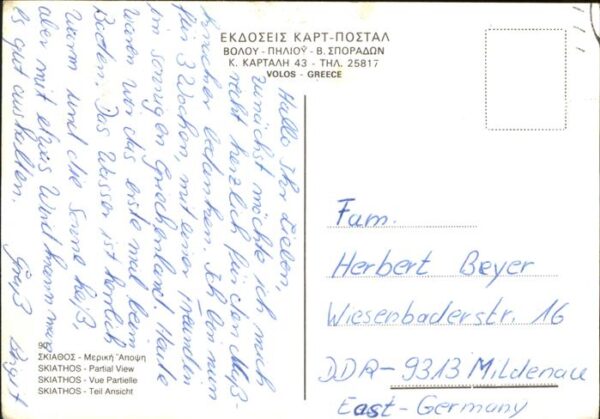 ΕΚΔΟΣΕΙΣ ΚΑΡΤ-ΠΟΣΤΑΛ
ΒΟΛΟΥ - ΠΗΛΙΟΥ - Β. ΣΠΟΡΑΔΩΝ
Κ. ΚΑΡΤΑΛΗ 43 - ΤΗΛ. 25817
VOLOS - GREECE
Hallo Ihr Lieben,
zunächst möchte ich mich
recht herzlich für den Maß-
bedanken. Ich bin nun
für 3 Wochen, mit einer Freundin
im sonnigen Griechenland. Heute
waren wir das erste mal beim
Baden. Das Wasser ist herrlich
warm und die Sonne heiß,
aber mit etwas Wind kann man
es gut aushalten.
Gruß Birgit
Fam.
Herbert Beyer
Wiesenbaderstr. 16
DDR-9313 Mildenau
East-Germany
ΣΚΙΑΘΟΣ - Μερική Ἄποψη
SKIATHOS - Partial View
SKIATHOS - Vue Partielle
SKIATHOS - Teil Ansicht